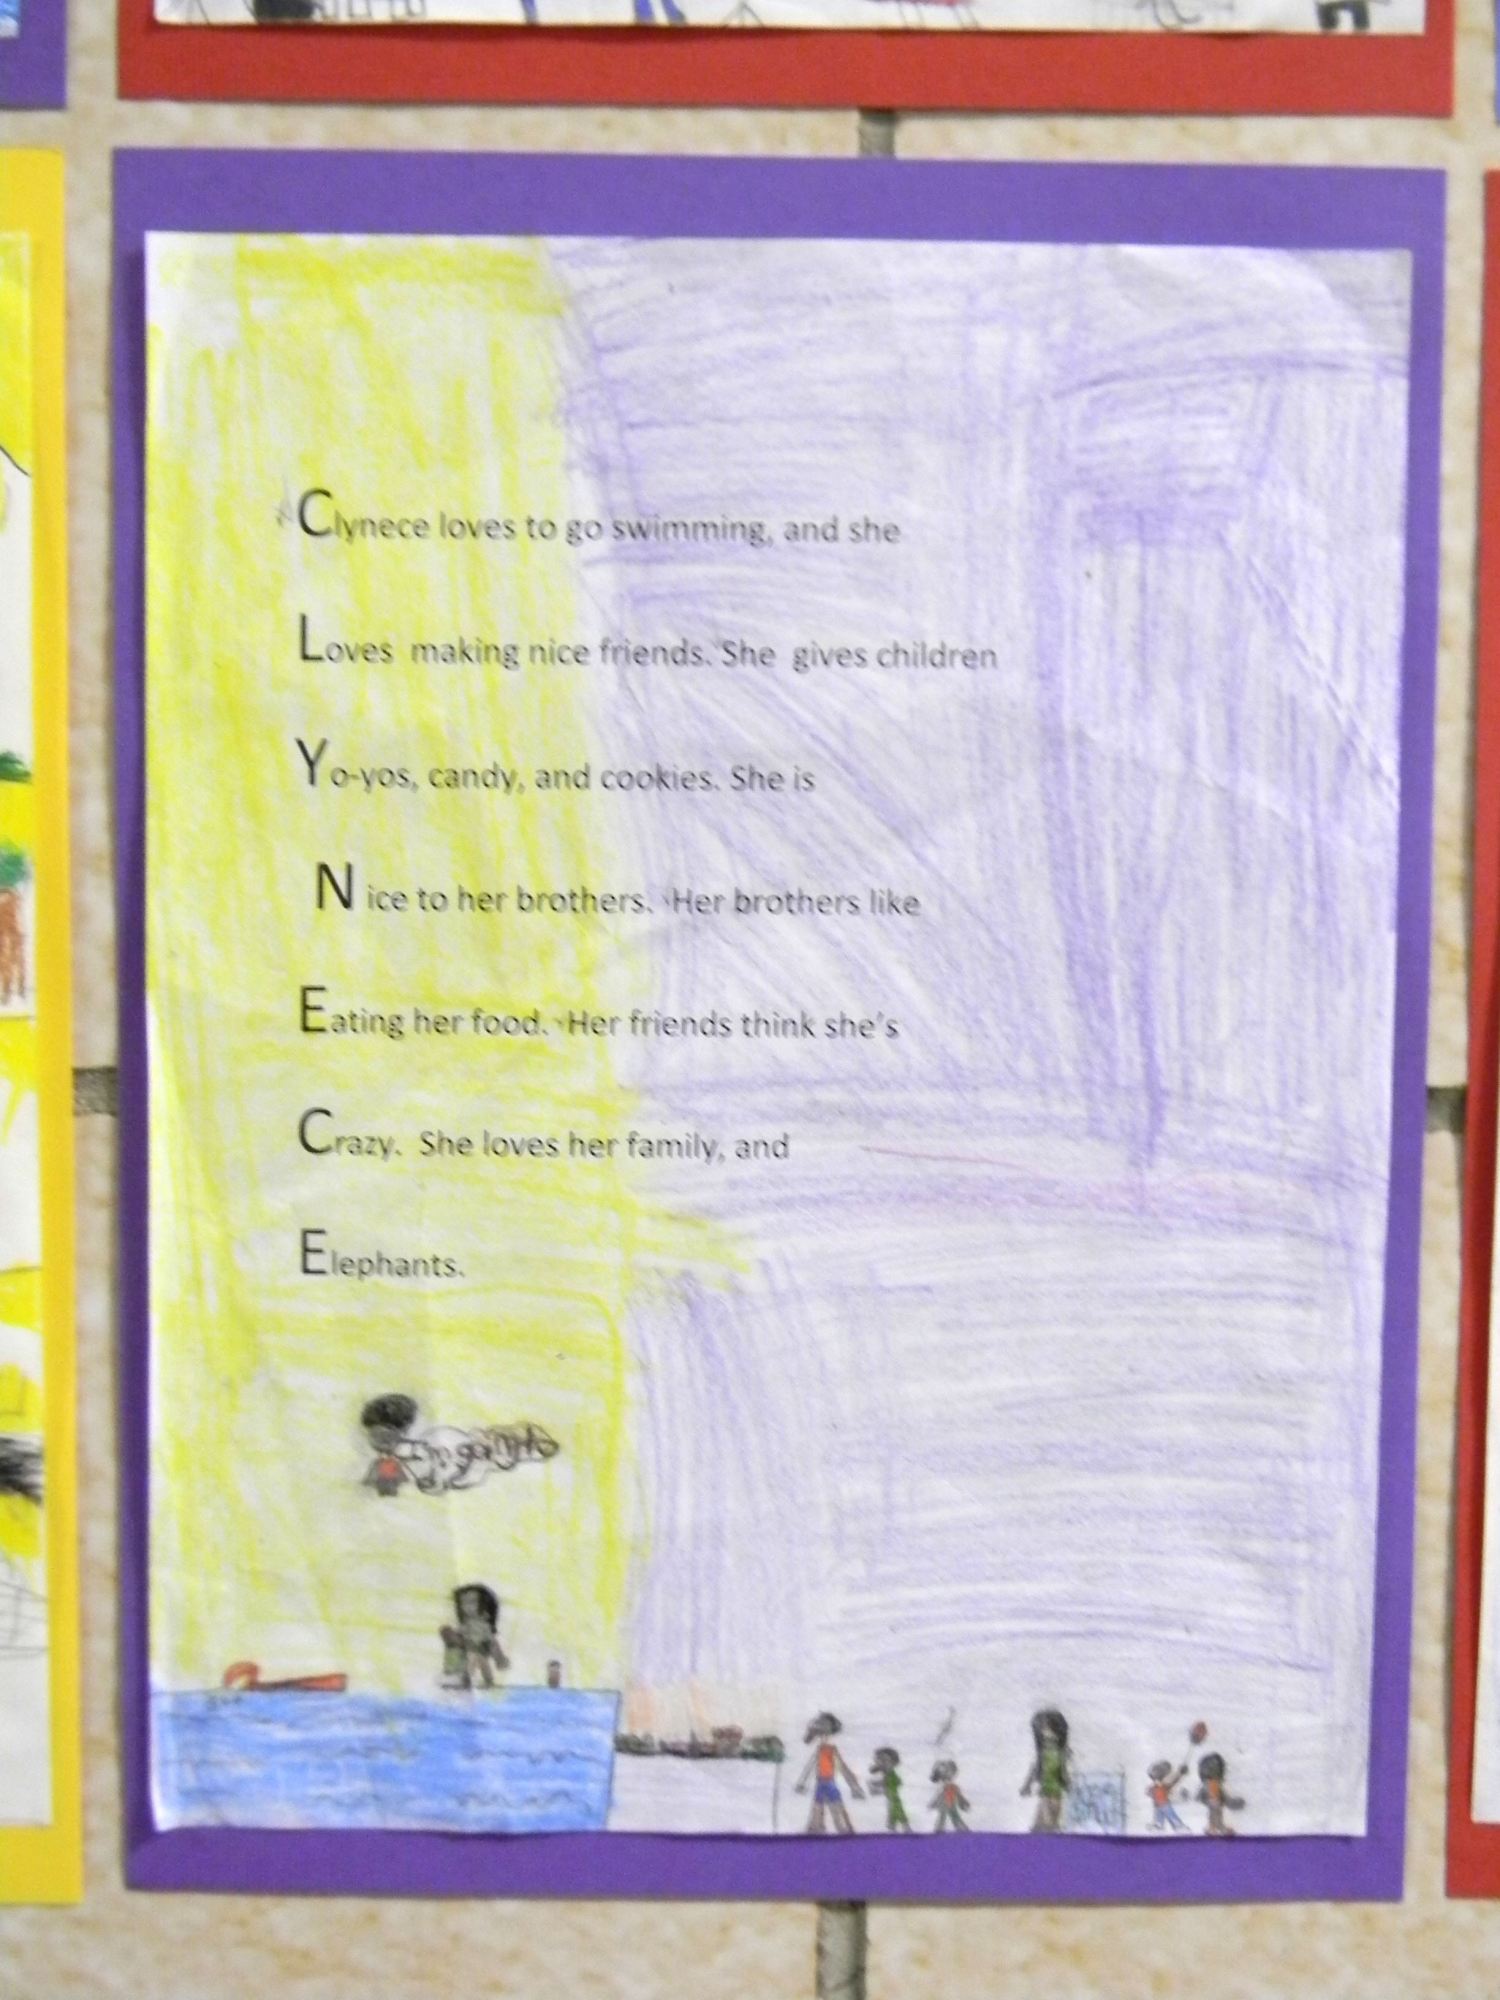 Clynece loves to go swimming, and she
Loves making nice friends. She gives children
Yo-yos, candy, and cookies. She is
Nice to her brothers. Her brothers like
Eating her food. Her friends think she's
Crazy. She loves her family, and
Elephants.
I'm going to